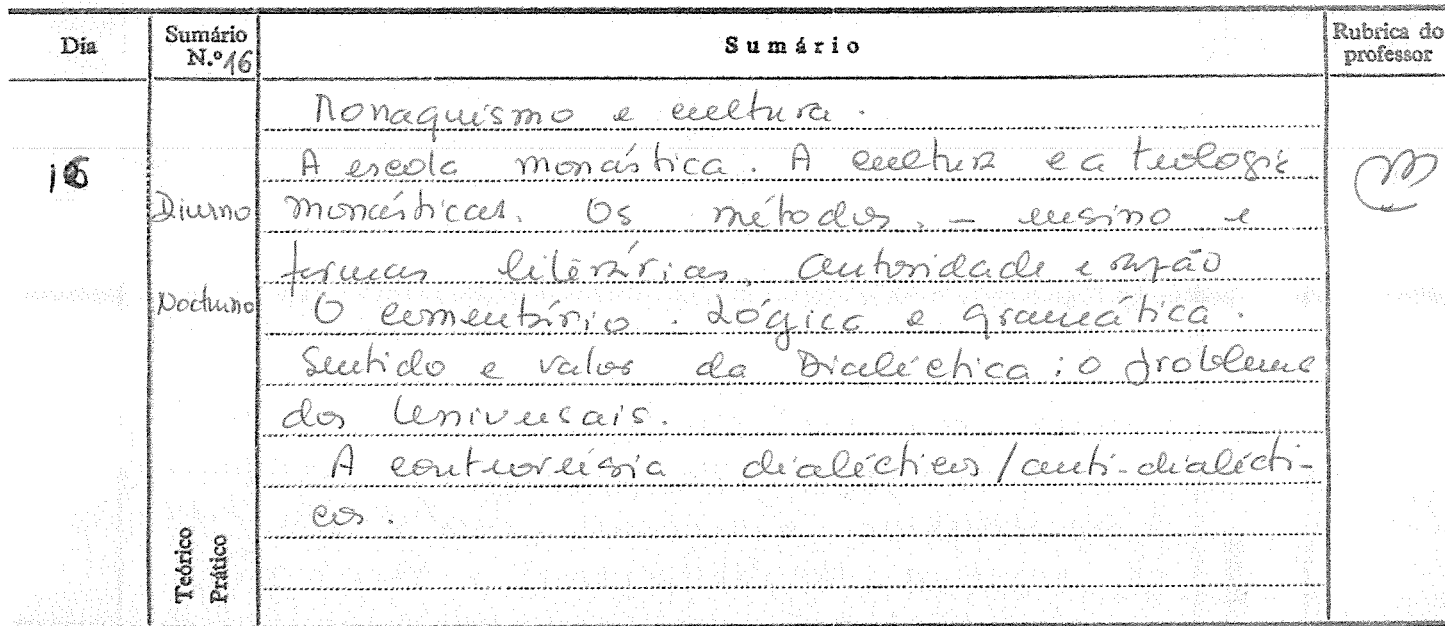 Dia
Sumário N.º 16
Sumário
Rubrica do professor
Monaquismo e cultura.
A escola monástica. A cultura e a teologia
Diurno
monásticas. Os métodos, - ensino e
formas literárias. Autoridade e razão
Nocturno
O comentário. Lógica e gramática.
Sentido e valor da Dialéctica: o problema
dos Universais.
A controvérsia dialécticos/anti-dialécti-
cos.
Teórico
Prático